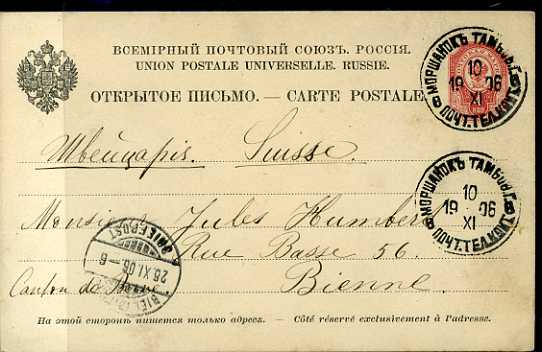 ВСЕМІРНЫЙ ПОЧТОВЫЙ СОЮЗЪ. РОССІЯ.
UNION POSTALE UNIVERSELLE. RUSSIE.
ОТКРЫТОЕ ПИСЬМО. — CARTE POSTALE
МОРШАНСКЪ ТАМБОВ.Г.
10
19 06
XI
ПОЧТ.ТЕЛ.КОНТ.
Швейцарія. Suisse.
МОРШАНСКЪ ТАМБОВ.Г.
10
19 06
XI
ПОЧТ.ТЕЛ.КОНТ.
Monsieur Jules Humbert
Rue Basse 56.
Bienne.
Canton de Berne
BRIEFPOST
26 XI.06.—6
BIEL
На этой сторонѣ пишется только адресъ. — Côté réservé exclusivement à l'adresse.